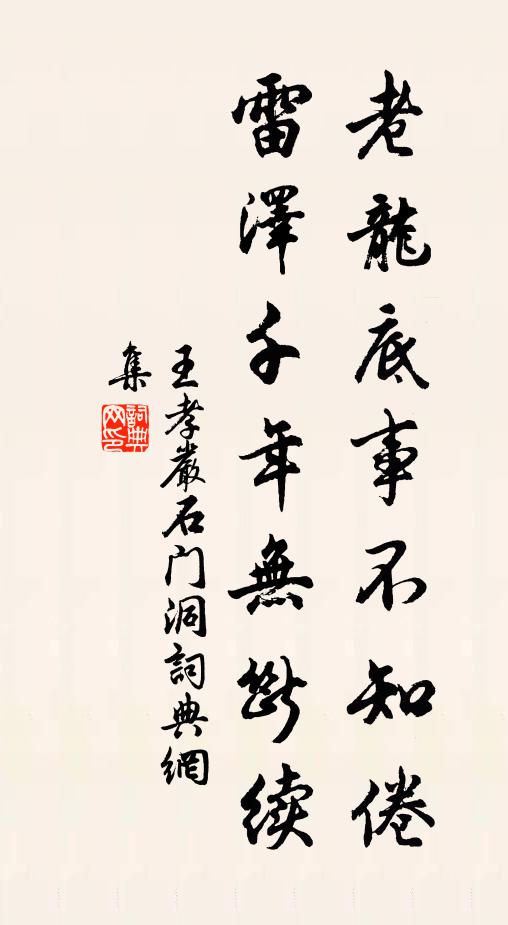 老龍底事不知倦
雷澤千年無斷续
王孝嚴石门洞詞典網
集
詞典網印